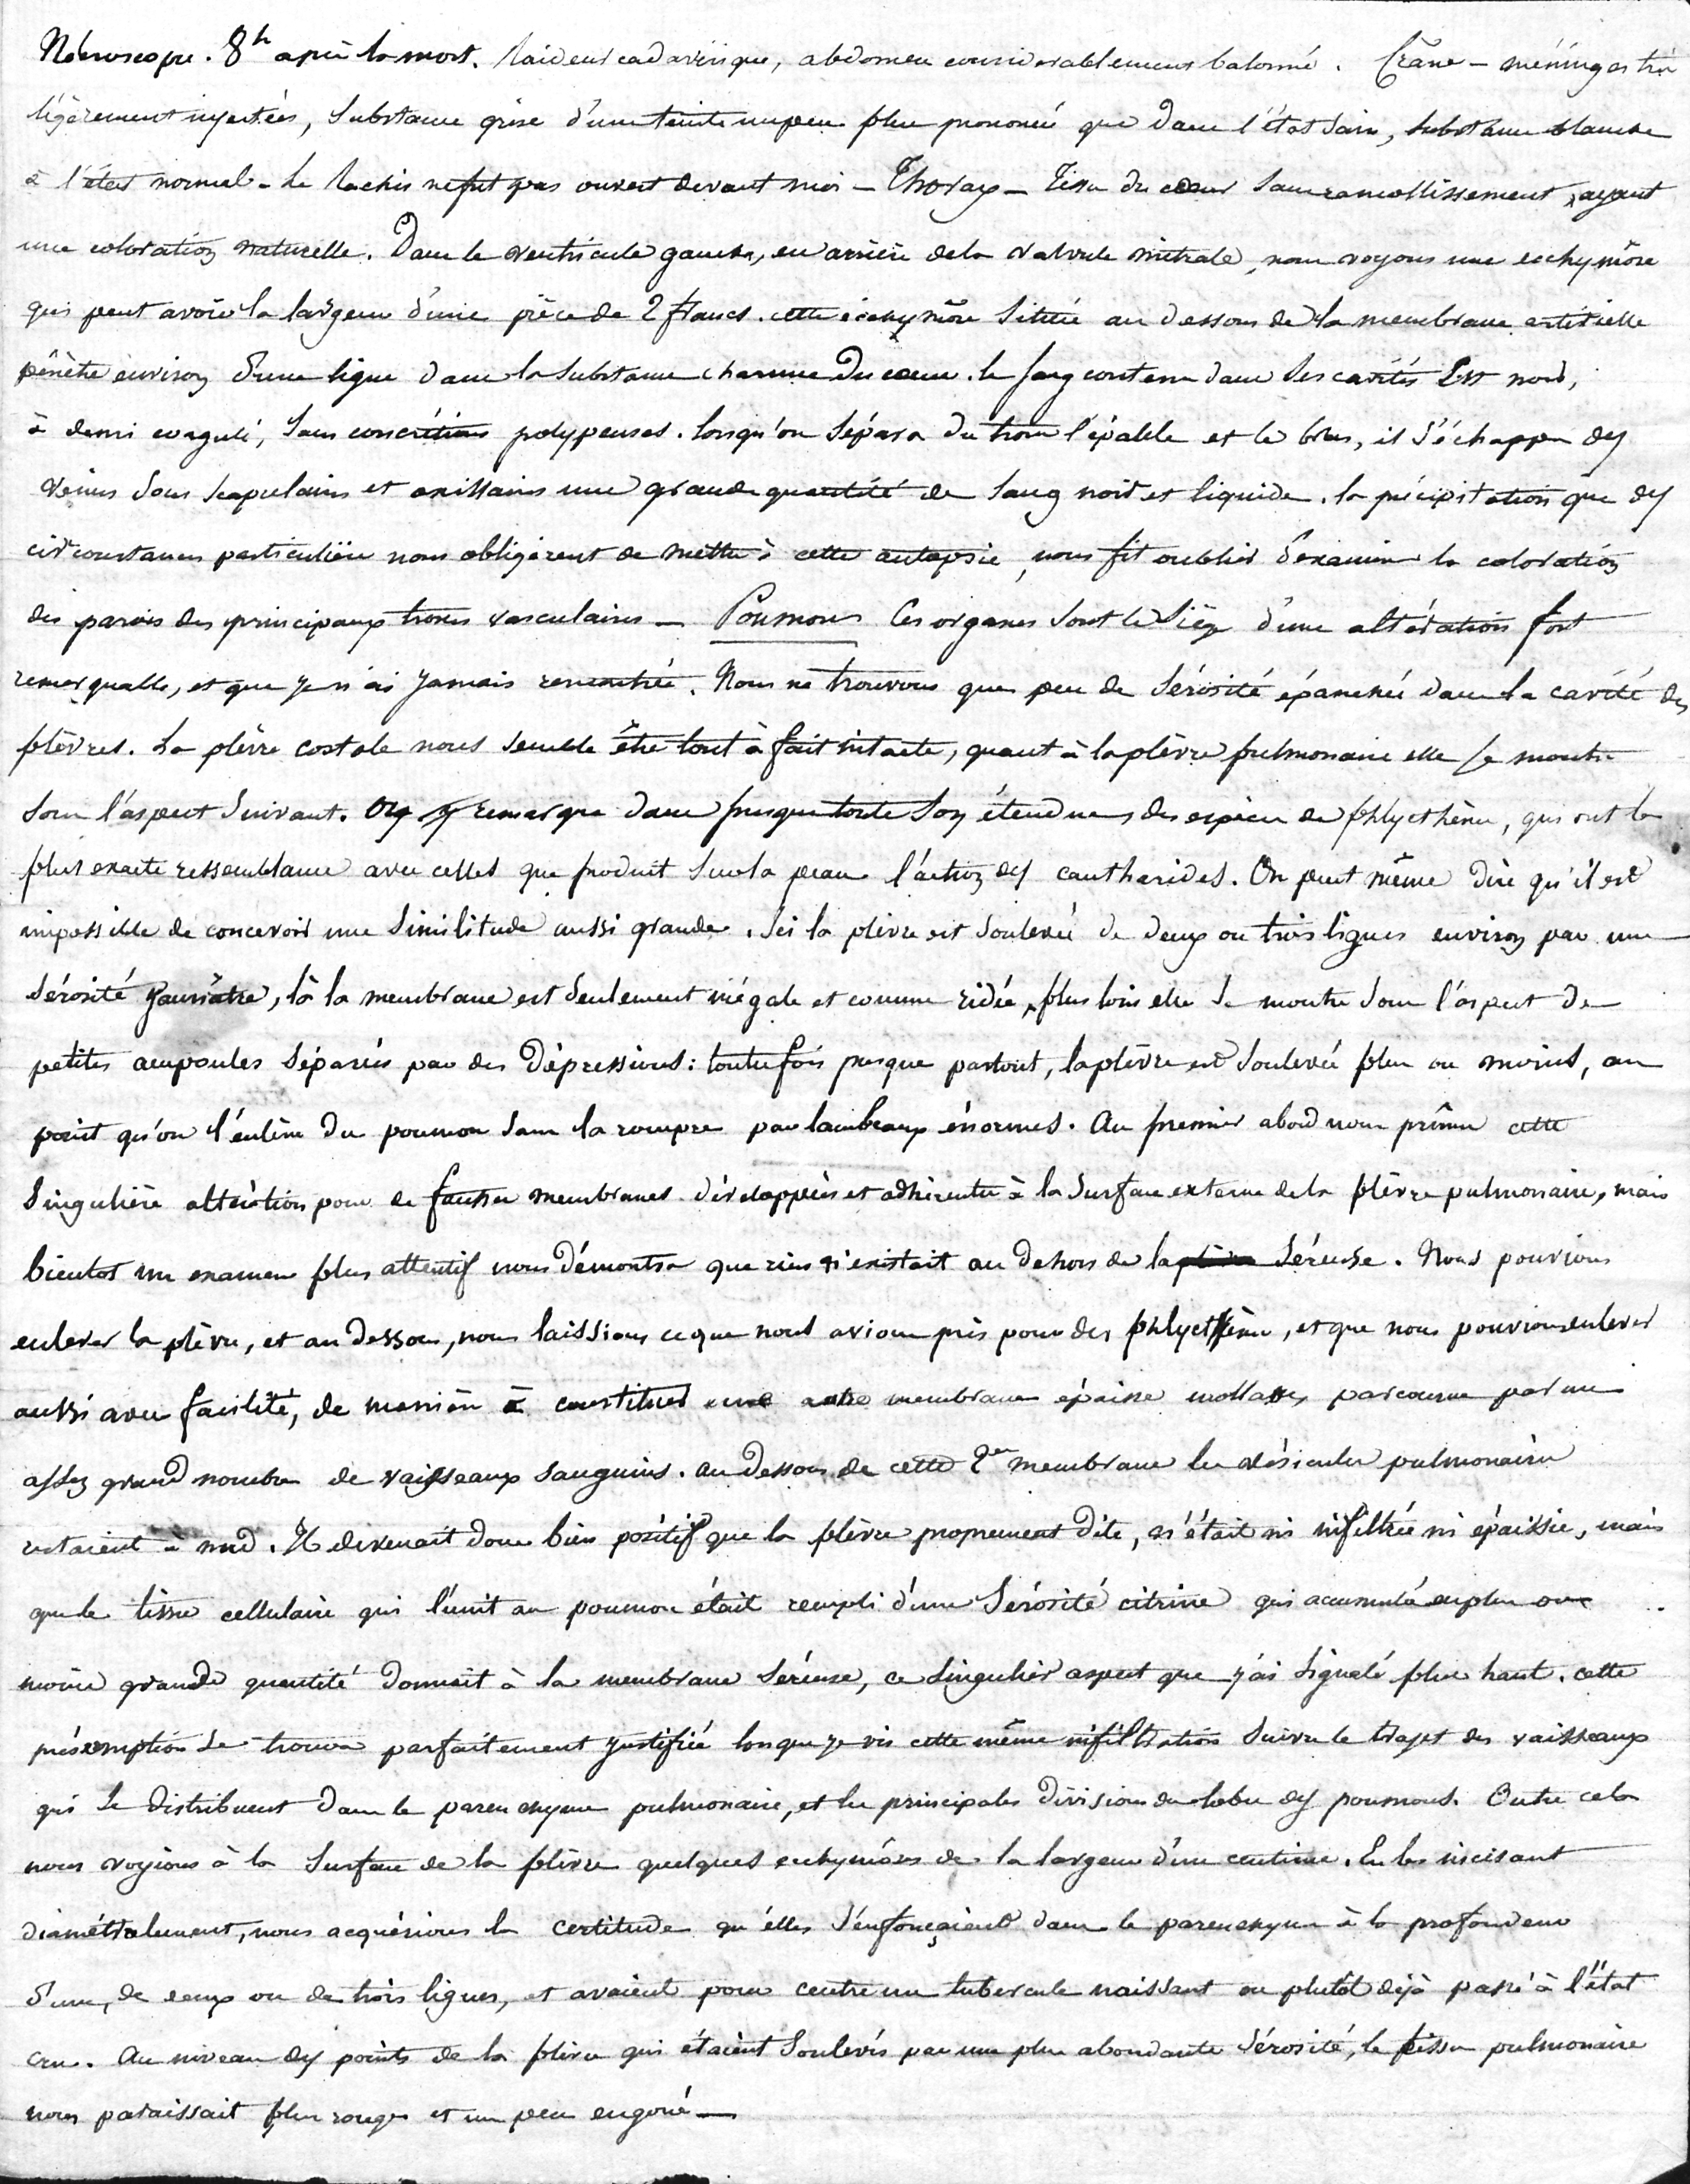 Nécroscopie. 8h après la mort. Raideur cadavérique, abdomen considérablement balonné. Crâne – méninges très
légèrement injectées, substance grise d'une teinte un peu plus prononcé que dans l'état sain, substance blanche
à l'état normal – Le Rachis ne fut pas ouvert devant moi – Thorax – Tissu du cœur sans ramollissement, ayant
une coloration naturelle. Dans le ventricule gauche, en arrière de la valvule mitrale, nous voyons une ecchymôse
qui peut avoir la largeur d'une pièce de 2 francs. cette écchymôse située au dessous de la membrane artérielle
pénètre environ d'une ligne dans la substance charnue du cœur. le sang contenu dans ses cavités est noir,
à demi coagulé, sans concrétions polypeuses. lorsqu'on sépara du tronc l'épaule et le bras, il s'échappa des
veines sous scapulaires et axillaires une grande quantité de sang noir et liquide. la précipitation que des
circonstances particulière nous obligèrent de mettre à cette autopsie, nous fit oublier d'examiner la coloration
des parois des principaux troncs vasculaires – Poumons Ces organes sont le siège d'une altération fort
remarquable, et que je n'ai jamais rencontrée. Nous ne trouvons que peu de sérosité épanchée dans la cavité des
plèvres. La plèvre costale nous semble être tout à fait intacte, quant à la plèvre pulmonaire elle se montre
sous l'aspect suivant. On y remarque dans presque toute son étendue des espèces de phlycthènes, qui ont la
plus exacte ressemblance avec celles que produit sur la peau l'action des cantharides. On peut même dire qu'il est
impossible de concevoir une similitude aussi grande. Ici la plèvre est soulevée de deux ou trois lignes environ par une
sérosité jaunâtre, là la membrane est seulement inégale et comme ridée, plus loin elle se montre sous l'aspect de
petites ampoules séparées par des dépressions: toutefois presque partout, la plèvre est soulevée plus ou moins, au
point qu'on l'enlève du poumon sans la rompre par lambeaux énormes. Au premier abord nous prîmes cette
singulière altération pour de fausses membranes développées et adhérentes à la surface externe de la plèvre pulmonaire, mais
bientot un examen plus attentif nous démontra que rien n'existait au dehors de la séreuse. Nous pouvions
enlever la plèvre, et au dessous, nous laissions ce que nous avions pris pour des phlycthènes, et que nous pouvions enlever
aussi avec facilité, de manière à constituer une autre membrane épaisse mollasse, parcourue par un
assez grand nombre de vaisseaux sanguins. au dessous de cette 2e membrane les vésicules pulmonaires
restaient à nud. Il devenait donc bien positif que la plèvre proprement dite, n'était ni infiltrée ni épaissie, mais
que le tissu cellulaire qui l'unit au poumon était rempli d'une sérosité citrine qui accumulé en plus ou
moins grande quantité donnait à la membrane séreuse, ce singulier aspect que j'ai signalé plus haut. cette
présomption se trouva parfaitement justifiée lorsque je vis cette même infiltration suivre le trajet des vaisseaux
qui se distribuent dans le parenchyme pulmonaire, et les principales divisions des lobes des poumons. Outre cela
nous voyions à la surface de la plèvre quelques ecchymôses de la largeur d'un centime. En les incisant
diamétralement, nous acquérions la certitude qu'elles s'enfonçaient dans le parenchyme à la profondeur
d'une, de deux ou de trois lignes, et avaient pour centre un tubercule naissant ou plutôt déjà passé à l'état
cru. Au niveau des points de la plèvre qui étaient soulevés par une plus abondante sérosité, le tissu pulmonaire
nous paraissait plus rouge et un peu engoué –